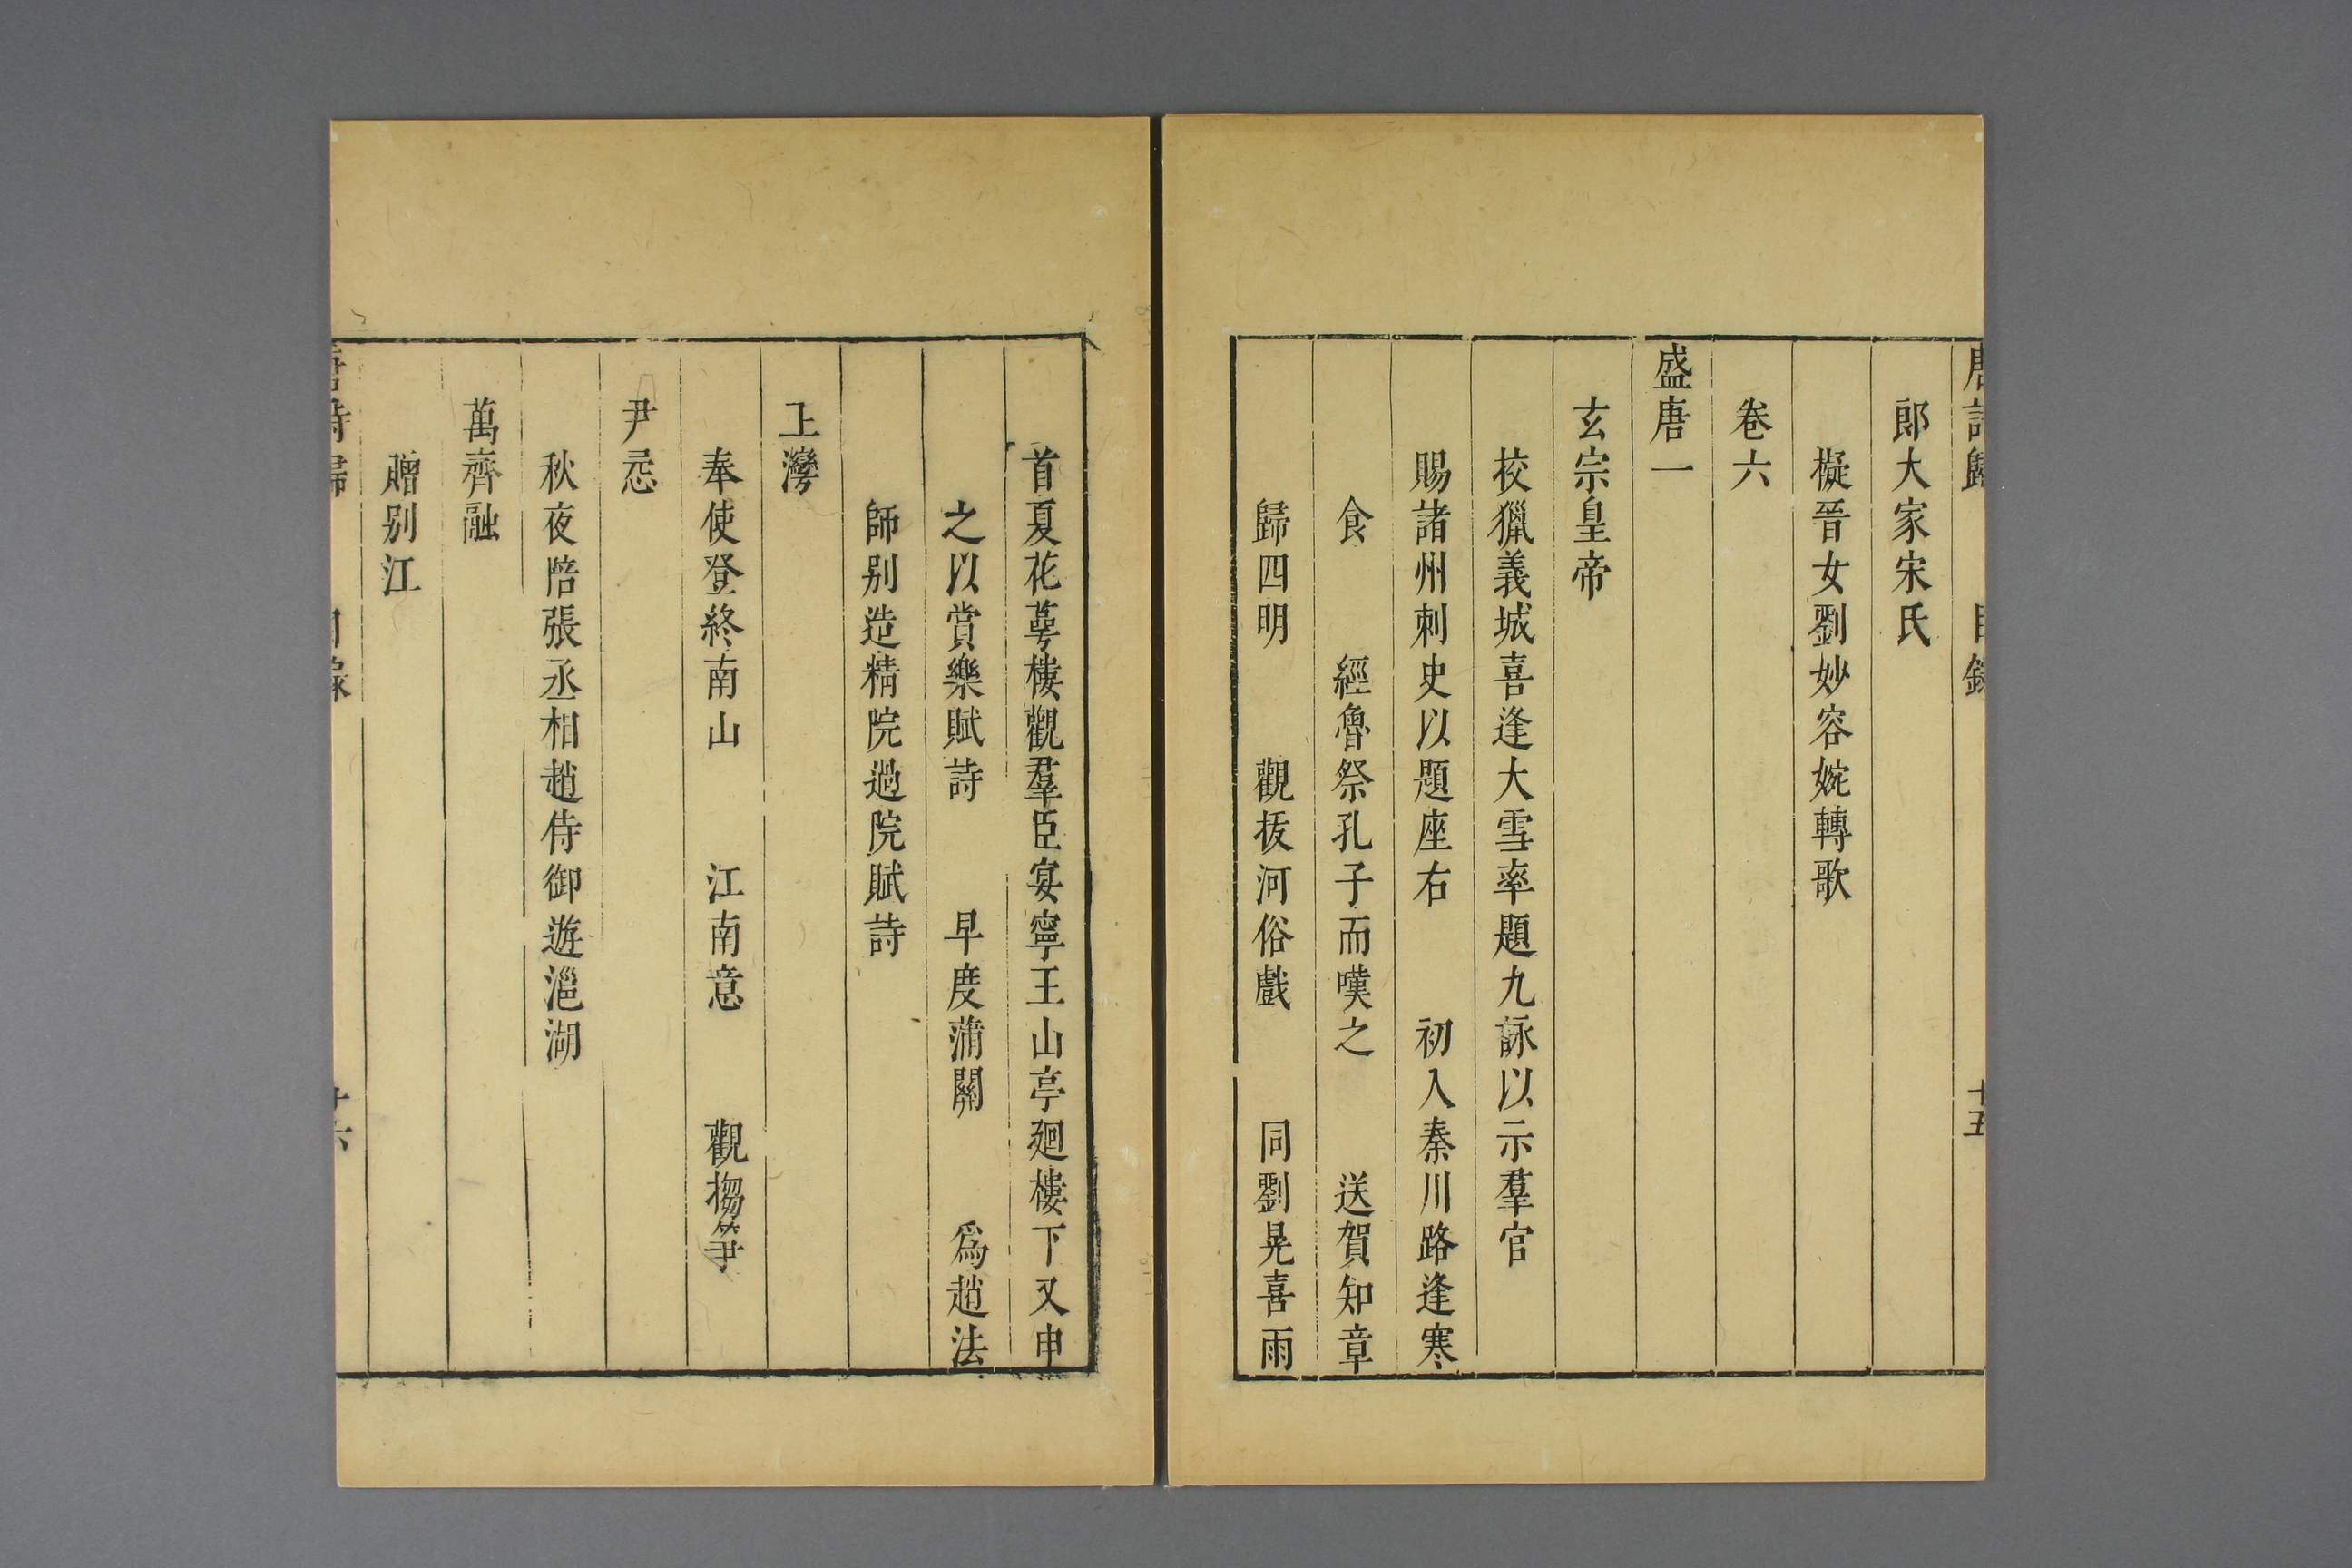 唐詩歸 目錄 十五
郎大家宋氏
擬晉女劉妙容婉轉歌
卷六
盛唐一
玄宗皇帝
校獵義城喜逢大雪率題九詠以示羣官
賜諸州刺史以題座右 初入秦川路逢寒
食 經魯祭孔子而嘆之 送賀知章
歸四明 觀拔河俗戲 同劉晃喜雨
首夏花萼樓觀羣臣宴寧王山亭廻樓下又申
之以賞樂賦詩 早度蒲關 爲趙法
師別造精院過院賦詩
上灣
奉使登終南山 江南意 觀搊箏
尹忞
秋夜陪張丞相趙侍御遊灉湖
萬齊融
贈别江
唐詩歸 目錄 十六